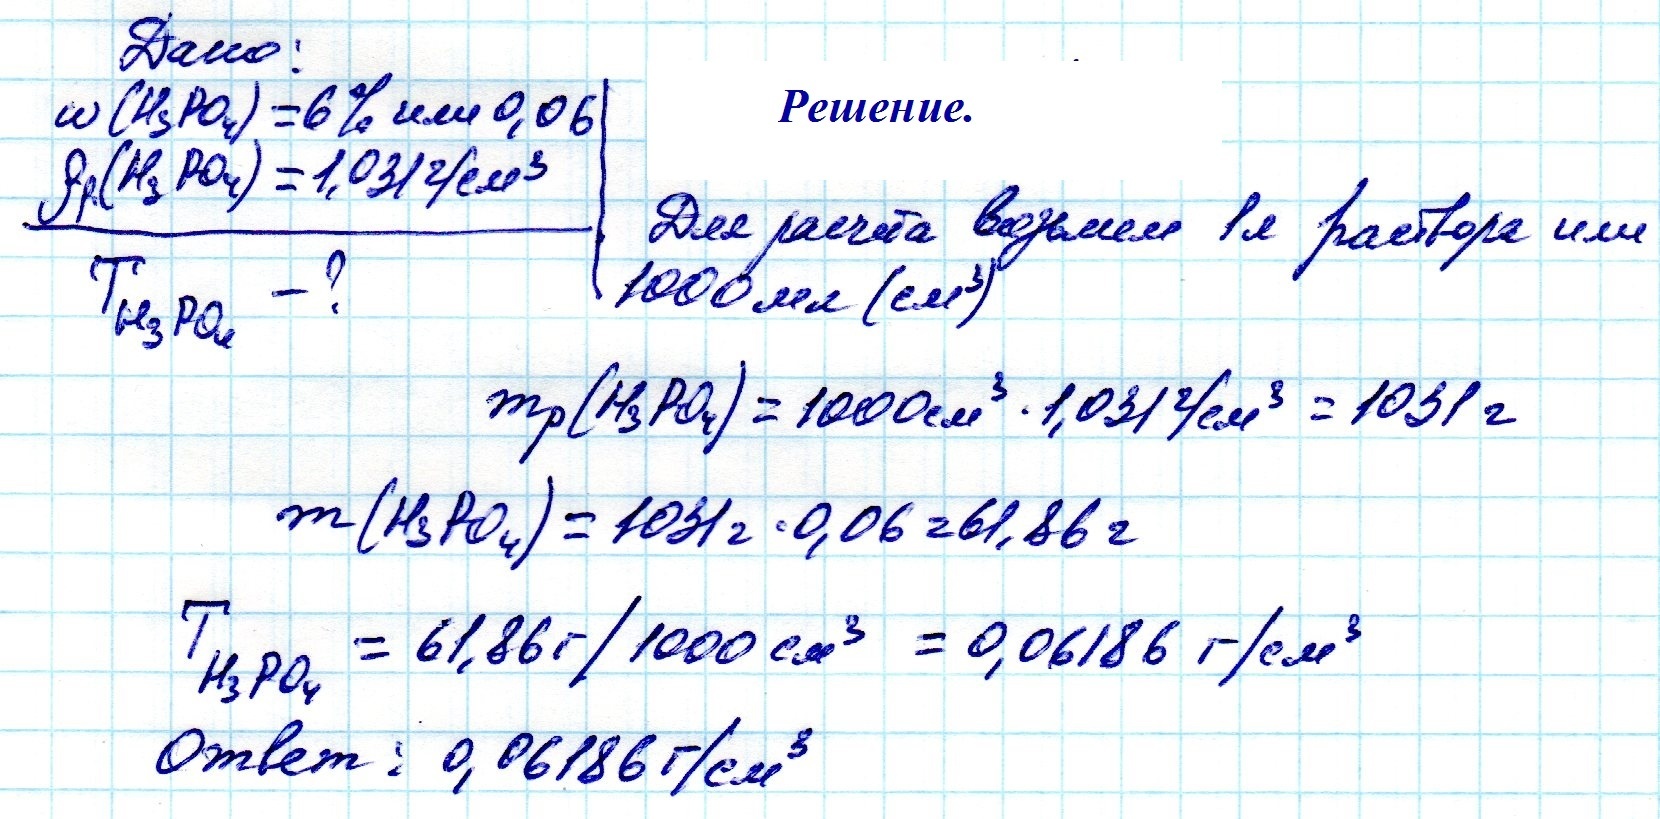 Дано:
w(H₃PO₄) = 6% или 0,06
ρр(H₃PO₄) = 1,031 г/см³
T H₃PO₄ - ?
Решение.
Для расчёта возьмем 1л раствора или
1000 мл (см³)
mр(H₃PO₄) = 1000 см³ · 1,031 г/см³ = 1031 г
m(H₃PO₄) = 1031 г · 0,06 = 61,86 г
T H₃PO₄ = 61,86 г / 1000 см³ = 0,06186 г/см³
Ответ: 0,06186 г/см³